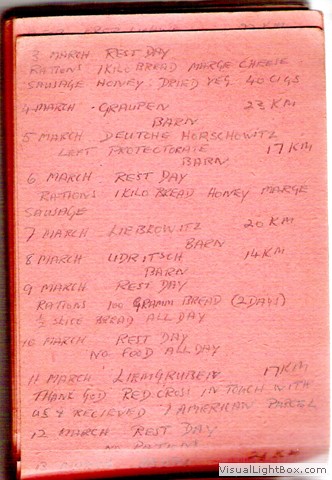 3 MARCH REST DAY
RATIONS 1 KILO BREAD MARGE CHEESE
SAUSAGE HONEY. DRIED VEG 40 CIGS
4 MARCH - GRAUPEN 23 KM
BARN
5 MARCH DEUTCHE HORSCHOWITZ
LEFT PROTECTORATE 17 KM
BARN
6 MARCH REST DAY
RATIONS 1 KILO BREAD HONEY MARGE
SAUSAGE
7 MARCH LIEBROWITZ 20 KM
BARN
8 MARCH UDRITSCH 14 KM
BARN
9 MARCH REST DAY
RATIONS 100 GRAMM BREAD (2 DAYS)
½ SLICE BREAD ALL DAY
10 MARCH REST DAY
NO FOOD ALL DAY
11 MARCH LIEMGRUBEN 17 KM
THANK GOD RED CROSS IN TOUCH WITH
US & RELIEVED 1 AMERICAN PARCEL
12 MARCH REST DAY
NO
13
VisualLightBox.com